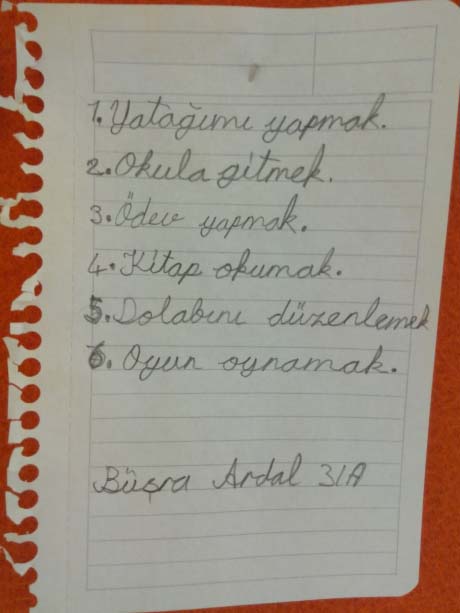 1. Yatağımı yapmak.
2. Okula gitmek.
3. Ödev yapmak.
4. Kitap okumak.
5. Dolabını düzenlemek
6. Oyun oynamak.
Büşra Ardal 3/A